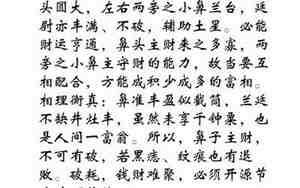 头圆大，左右两旁之小鼻兰台，廷
尉亦丰满、不破，辅助土星。必能
财运亨通，鼻头主财来之多寡，两
旁之小鼻主守财的能力，故当要互
相配合，方能成积少成多的富相。
相理衡真：鼻准丰盈似截筒，兰廷
不缺井灶丰，虽然未享千钟粟，也
是人间一富翁。所以，鼻子主财，
不可有破，若黑痣，纹痕也有退
败。破耗，钱财难聚，必须开源节